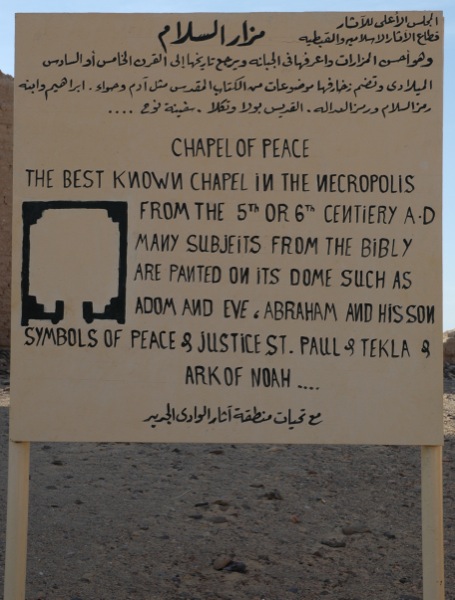 المجلس الأعلى للآثار
قطاع الآثار الاسلاميه والقبطيه
مزار السلام
وهو أحسن المزارات واعرفها فى الجبانه ويرجع تاريخها إلى القرن الخامس أو السادس
الميلادى وتضم زخارفها موضوعات من الكتاب المقدس مثل آدم وحواء . ابراهيم وابنه
رمز السلام ورمز العداله . القديس بولا وتكلا . سفينة نوح ....
CHAPEL OF PEACE
THE BEST KNOWN CHAPEL IN THE NECROPOLIS
FROM THE 5TH OR 6TH CENTIERY A.D
MANY SUBJEITS FROM THE BIBLY
ARE PANTED ON ITS DOME SUCH AS
ADOM AND EVE , ABRAHAM AND HIS SON
SYMBOLS OF PEACE & JUSTICE ST. PAUL & TEKLA &
ARK OF NOAH ....
مع تحيات منطقة آثار الوادى الجديد